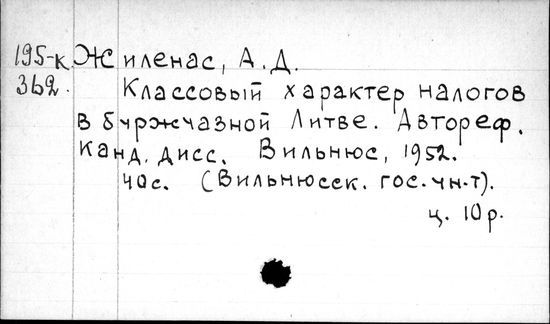 195-к Жиленас, А.Д.
362. Классовый характер налогов
в буржуазной Литве. Автореф.
канд. дисс. Вильнюс, 1952.
40с. (Вильнюсск. гос. ун-т).
ц. 10р.